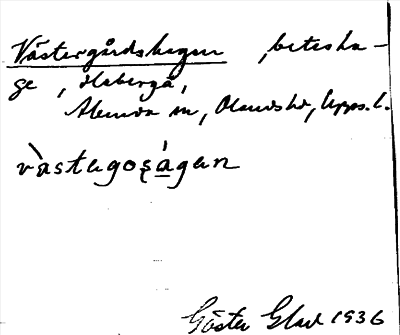 Västergårdshagen, betesha-
ge, Åsberga,
Alunda sn, Olands hd, Upps. l.
vàstagoṣágan
Gösta Glad 1936